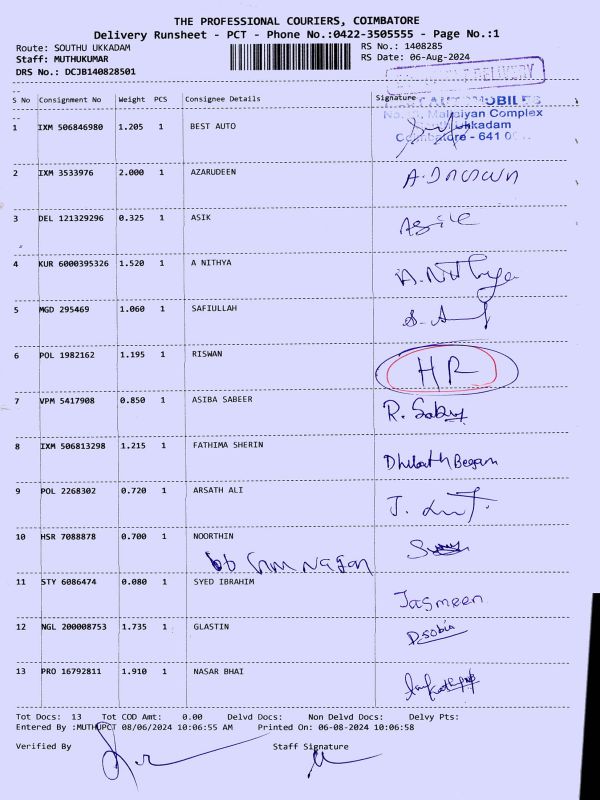 THE PROFESSIONAL COURIERS, COIMBATORE
Delivery Runsheet - PCT - Phone No.:0422-3505555 - Page No.:1
Route: SOUTHU UKKADAM RS No.: 1408285
Staff: MUTHUKUMAR RS Date: 06-Aug-2024
DRS No.: DCJB140828501
DELIVERY
S No Consignment No Weight PCS Consignee Details Signature
AUTOMOBILES
Complex
1 IXM 506846980 1.205 1 BEST AUTO
Ukkadam
Coimbatore - 641
2 IXM 3533976 2.000 1 AZARUDEEN
3 DEL 121329296 0.325 1 ASIK
4 KUR 6000395326 1.520 1 A NITHYA A.Nithya
5 MGD 295469 1.060 1 SAFIULLAH
6 POL 1982162 1.195 1 RISWAN HR
7 VPM 5417908 0.850 1 ASIBA SABEER R.
8 IXM 506813298 1.215 1 FATHIMA SHERIN Dhilath Begam
9 POL 2268302 0.720 1 ARSATH ALI J.
10 HSR 7088878 0.700 1 NOORTHIN
11 STY 6086474 0.080 1 SYED IBRAHIM Jasmeen
12 NGL 200008753 1.735 1 GLASTIN P.sobia
13 PRO 16792811 1.910 1 NASAR BHAI
Tot Docs: 13 Tot COD Amt: 0.00 Delvd Docs: Non Delvd Docs: Delvy Pts:
Entered By :MUTHUPCT 08/06/2024 10:06:55 AM Printed On: 06-08-2024 10:06:58
Verified By Staff Signature